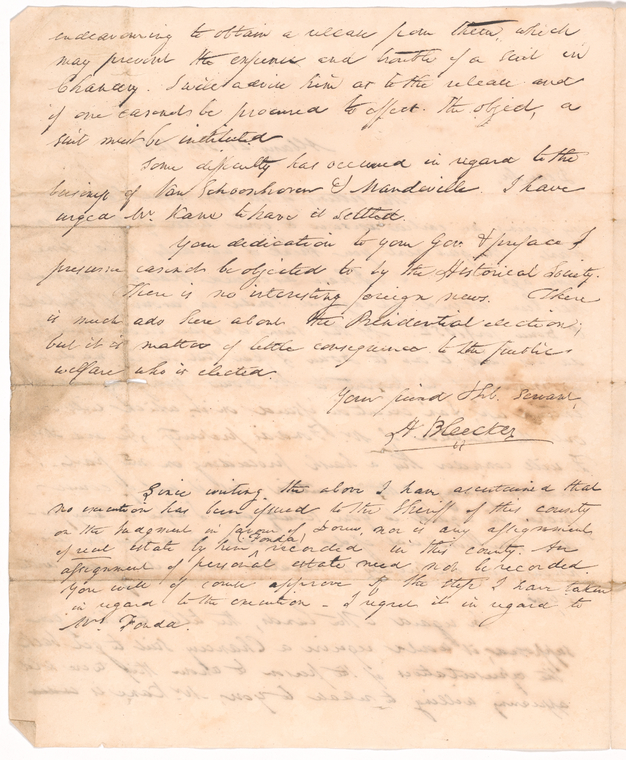 endeavouring to obtain a release from them, which
may prevent the expense and trouble of a suit in
Chancery. I will advise him as to the release and
if one cannot be procured to effect the object, a
suit must be instituted
Some difficulty has occurred in regard to the
business of Van Schoonhoven & Mandeville. I have
urged Mr. Kane to have it settled.
Your dedication to your Gov. & preface I
presume cannot be objected to by the Historical Society.
There is no interesting foreign news. There
is much ado here about the Presidential election;
but it is matter of little consequence to the public
welfare who is elected.
Your friend & hb. servant,
H. Bleecker
Since writing the above I have ascertained that
no execution has been issued to the Sheriff of this county
on the Judgment in favour of nor is any assignment
of real estate by him (Fonda) recorded in this county. An
assignment of personal estate need not be recorded.
You will of course approve of the step I have taken
in regard to the execution - I regret it in regard to
Mrs. Fonda.